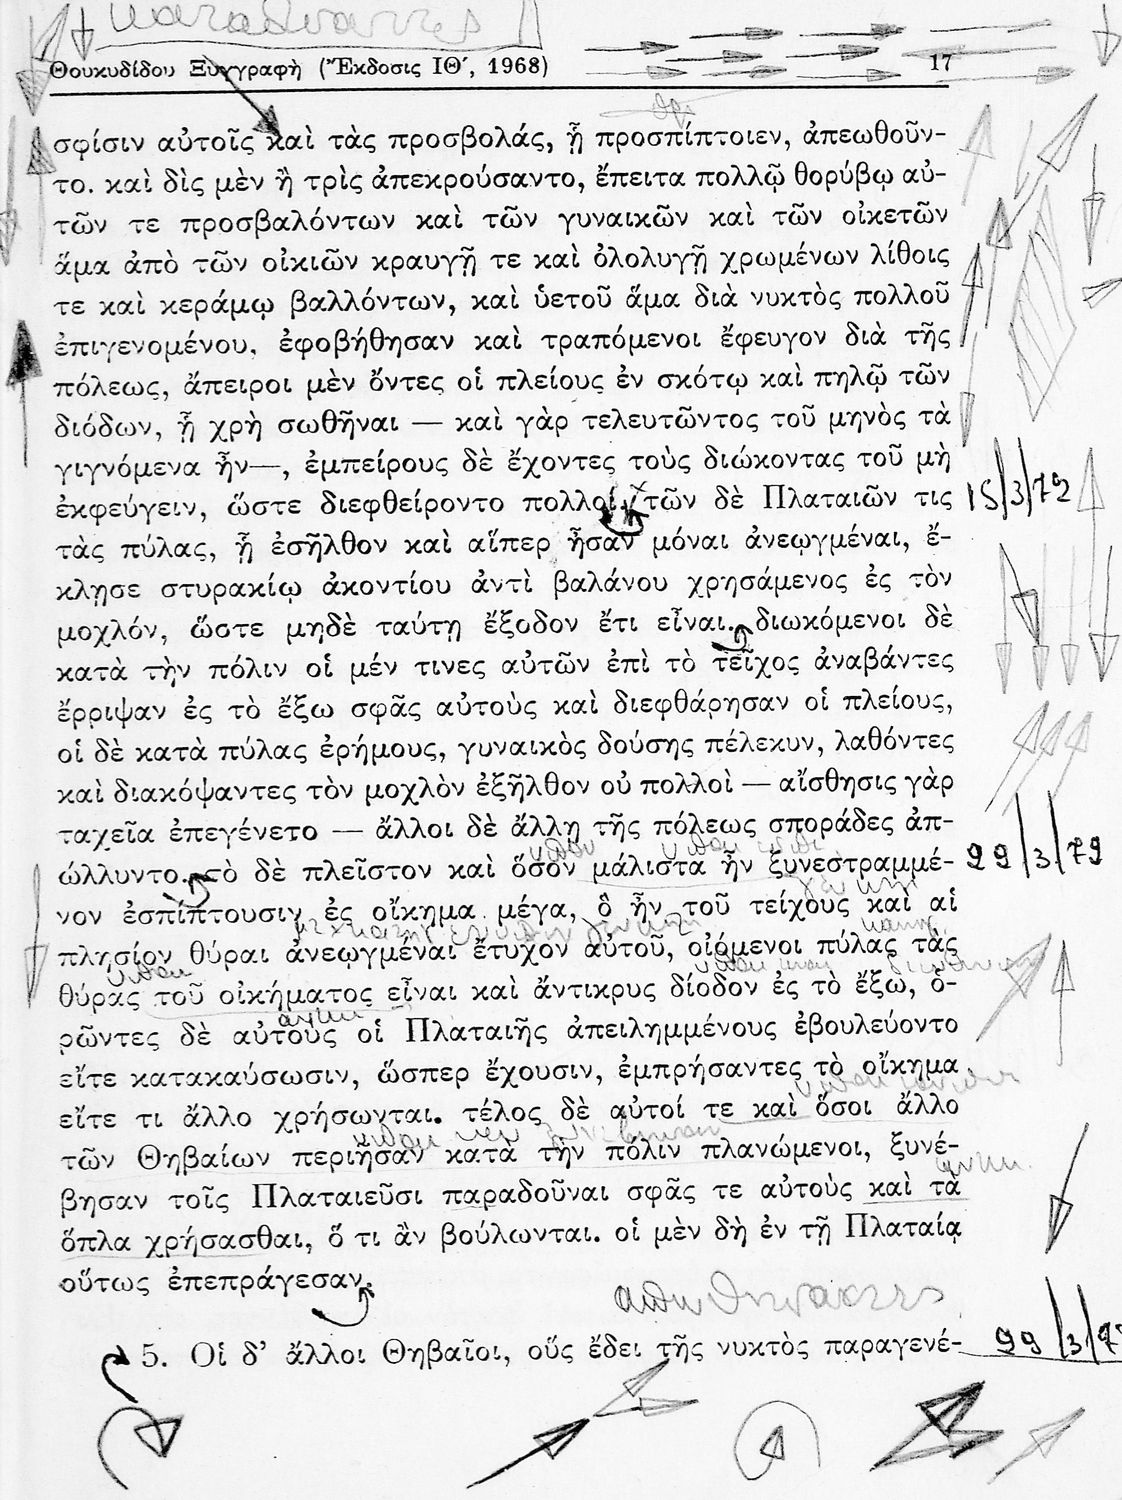 Θουκυδίδου Ξυγγραφὴ (Ἔκδοσις ΙΘ´, 1968) 17
σφίσιν αὐτοῖς καὶ τὰς προσβολάς, ᾗ προσπίπτοιεν, ἀπεωθοῦν-
το. καὶ δὶς μὲν ἢ τρὶς ἀπεκρούσαντο, ἔπειτα πολλῷ θορύβῳ αὐ-
τῶν τε προσβαλόντων καὶ τῶν γυναικῶν καὶ τῶν οἰκετῶν
ἅμα ἀπὸ τῶν οἰκιῶν κραυγῇ τε καὶ ὀλολυγῇ χρωμένων λίθοις
τε καὶ κεράμῳ βαλλόντων, καὶ ὑετοῦ ἅμα διὰ νυκτὸς πολλοῦ
ἐπιγενομένου, ἐφοβήθησαν καὶ τραπόμενοι ἔφευγον διὰ τῆς
πόλεως, ἄπειροι μὲν ὄντες οἱ πλείους ἐν σκότῳ καὶ πηλῷ τῶν
διόδων, ᾗ χρὴ σωθῆναι — καὶ γὰρ τελευτῶντος τοῦ μηνὸς τὰ
γιγνόμενα ἦν—, ἐμπείρους δὲ ἔχοντες τοὺς διώκοντας τοῦ μὴ
ἐκφεύγειν, ὥστε διεφθείροντο πολλοί. τῶν δὲ Πλαταιῶν τις
15/3/79
τὰς πύλας, ᾗ ἐσῆλθον καὶ αἵπερ ἦσαν μόναι ἀνεῳγμέναι, ἔ-
κλῃσε στυρακίῳ ἀκοντίου ἀντὶ βαλάνου χρησάμενος ἐς τὸν
μοχλόν, ὥστε μηδὲ ταύτῃ ἔξοδον ἔτι εἶναι. διωκόμενοι δὲ
κατὰ τὴν πόλιν οἱ μέν τινες αὐτῶν ἐπὶ τὸ τεῖχος ἀναβάντες
ἔρριψαν ἐς τὸ ἔξω σφᾶς αὐτοὺς καὶ διεφθάρησαν οἱ πλείους,
οἱ δὲ κατὰ πύλας ἐρήμους, γυναικὸς δούσης πέλεκυν, λαθόντες
καὶ διακόψαντες τὸν μοχλὸν ἐξῆλθον οὐ πολλοὶ — αἴσθησις γὰρ
ταχεῖα ἐπεγένετο — ἄλλοι δὲ ἄλλῃ τῆς πόλεως σποράδες ἀπ-
ώλλυντο. τὸ δὲ πλεῖστον καὶ ὅσον μάλιστα ἦν ξυνεστραμμέ-
22/3/79
νον ἐσπίπτουσιν ἐς οἴκημα μέγα, ὃ ἦν τοῦ τείχους καὶ αἱ
πλησίον θύραι ἀνεῳγμέναι ἔτυχον αὐτοῦ, οἰόμενοι πύλας τὰς
θύρας τοῦ οἰκήματος εἶναι καὶ ἄντικρυς δίοδον ἐς τὸ ἔξω, ὁ-
ρῶντες δὲ αὐτοὺς οἱ Πλαταιῆς ἀπειλημμένους ἐβουλεύοντο
εἴτε κατακαύσωσιν, ὥσπερ ἔχουσιν, ἐμπρήσαντες τὸ οἴκημα
εἴτε τι ἄλλο χρήσωνται. τέλος δὲ αὐτοί τε καὶ ὅσοι ἄλλο
τῶν Θηβαίων περιῆσαν κατὰ τὴν πόλιν πλανώμενοι, ξυνέ-
βησαν τοῖς Πλαταιεῦσι παραδοῦναι σφᾶς τε αὐτοὺς καὶ τὰ
ὅπλα χρήσασθαι, ὅ τι ἂν βούλωνται. οἱ μὲν δὴ ἐν τῇ Πλαταίᾳ
οὕτως ἐπεπράγεσαν.
5. Οἱ δ' ἄλλοι Θηβαῖοι, οὓς ἔδει τῆς νυκτὸς παραγενέ-